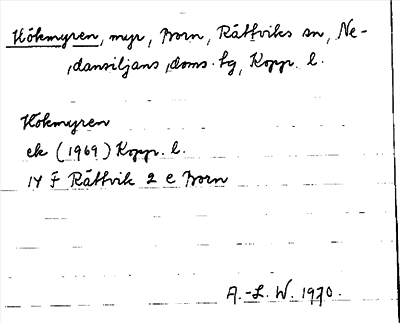 Kökmyren, myr, Born, Rättviks sn, Ne-
dansiljans doms. tg, Kopp. l.
Kökmyren
ek (1969) Kopp. l.
14 F Rättvik 2 e Born
A.-L. W. 1970.